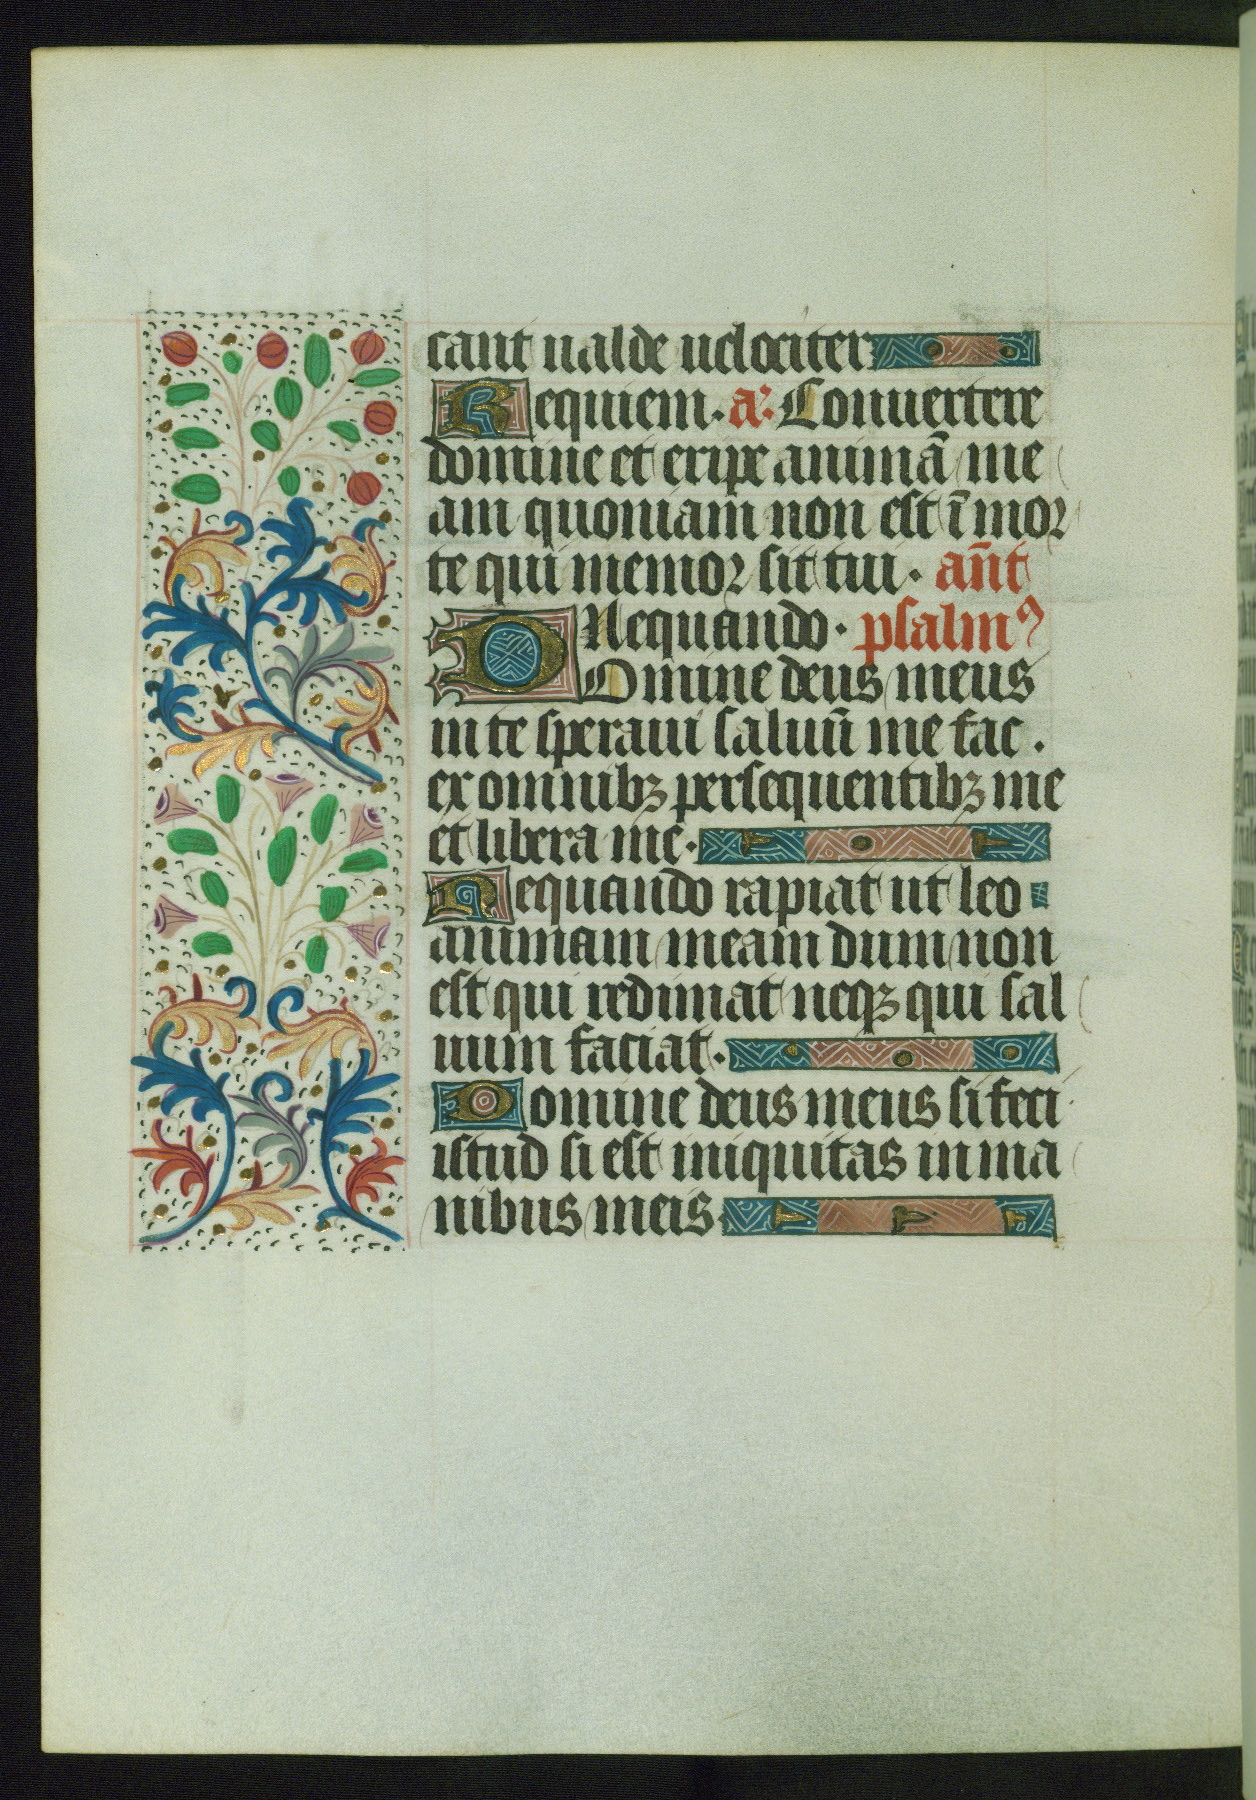 cant ualde uelociter
Requiem. a᷑. Conuertere
domine et eripe animā me
am quoniam non est ī mor
te qui memor sit tui. an̄t
Nequando. psalmꝰ
Domine deus meus
in te speraui saluū me fac.
ex omnibꝫ persequentibꝫ me
et libera me.
Nequando rapiat ut leo
animam meam dum non
est qui redimat neqꝫ qui sal
uum faciat.
Domine deus meus si feci
istud si est iniquitas in ma
nibus meis